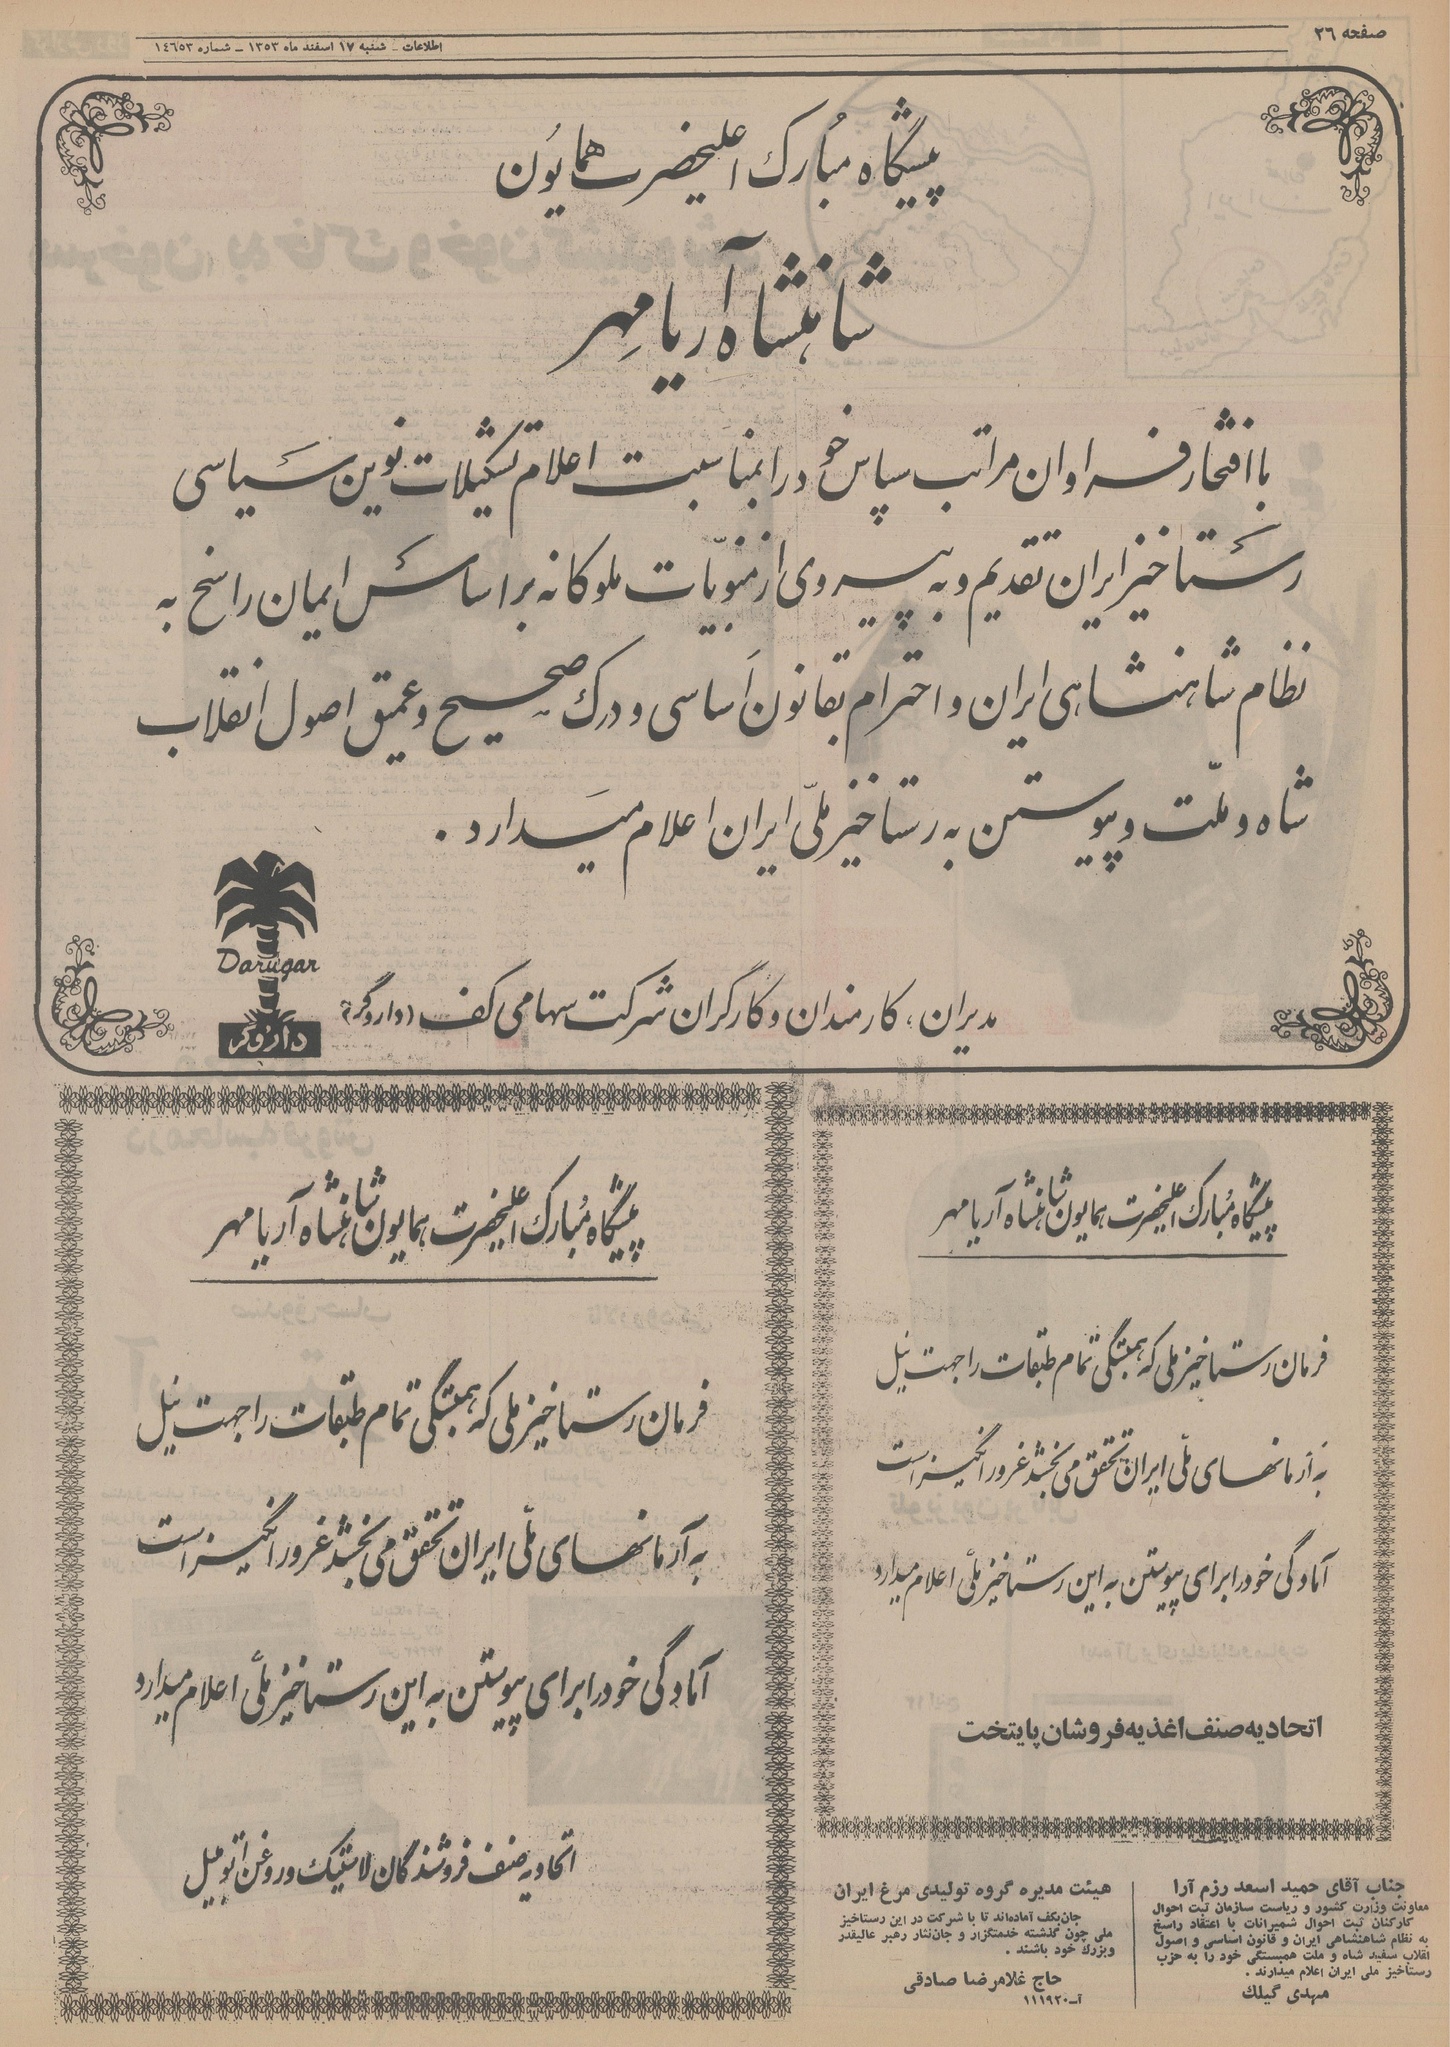 صفحه ۲۶
اطلاعات ـ شنبه ۱۷ اسفند ماه ۱۳۵۳ ـ شماره ۱٤٦٥۳
پیشگاه مبارک اعلیحضرت همایون
شاهنشاه آریامهر
با افتخار فراوان مراتب سپاس خود را بمناسبت اعلام تشکیلات نوین سیاسی
رستاخیز ایران تقدیم و به پیروی از منویات ملوکانه بر اساس ایمان راسخ به
نظام شاهنشاهی ایران و احترام بقانون اساسی و درک صحیح و عمیق اصول انقلاب
شاه و ملّت و پیوستن به رستاخیز ملّی ایران اعلام میدارد .
مدیران، کارمندان و کارگران شرکت سهامی کف (داروگر)
Darugar
داروگر
پیشگاه مبارک اعلیحضرت همایون شاهنشاه آریامهر
فرمان رستاخیز ملی که همبستگی تمام طبقات را جهت نیل
به آرمانهای ملّی ایران تحقق می بخشد غرورانگیز است
آمادگی خود را برای پیوستن به این رستاخیز ملّی اعلام میدارد
اتحادیه صنف اغذیه فروشان پایتخت
پیشگاه مبارک اعلیحضرت همایون شاهنشاه آریامهر
فرمان رستاخیز ملی که همبستگی تمام طبقات را جهت نیل
به آرمانهای ملّی ایران تحقق می بخشد غرورانگیز است
آمادگی خود را برای پیوستن به این رستاخیز ملّی اعلام میدارد
اتحادیه صنف فروشندگان لاستیک و روغن اتومبیل
جناب آقای حمید اسعد رزم آرا
معاونت وزارت کشور و ریاست سازمان ثبت احوال
کارکنان ثبت احوال شمیرانات با اعتقاد راسخ
به نظام شاهنشاهی ایران و قانون اساسی و اصول
انقلاب سفید شاه و ملت همبستگی خود را به حزب
رستاخیز ملی ایران اعلام میدارند .
مهدی گیلک
هیئت مدیره گروه تولیدی مرغ ایران
جان‌بکف آماده‌اند تا با شرکت در این رستاخیز
ملی چون گذشته خدمتگزار و جان‌نثار رهبر عالیقدر
وبزرگ خود باشند .
حاج غلامرضا صادقی
آ-۱۱۱۹۲۰